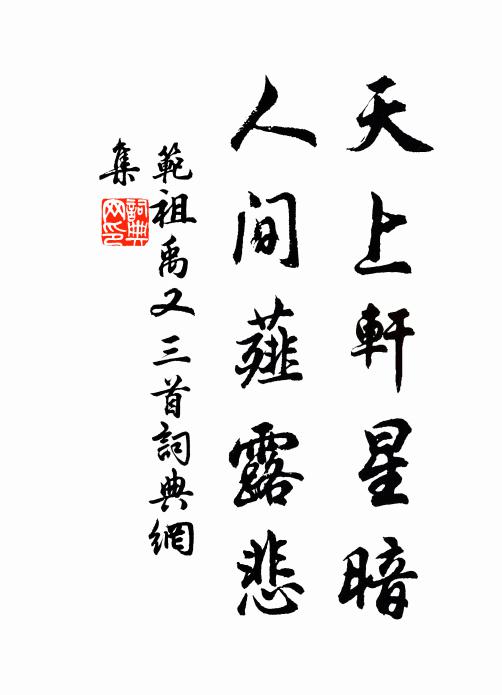 天上軒星暗
人间薤露悲
範祖禹又三首詞典網
集
詞典
网印